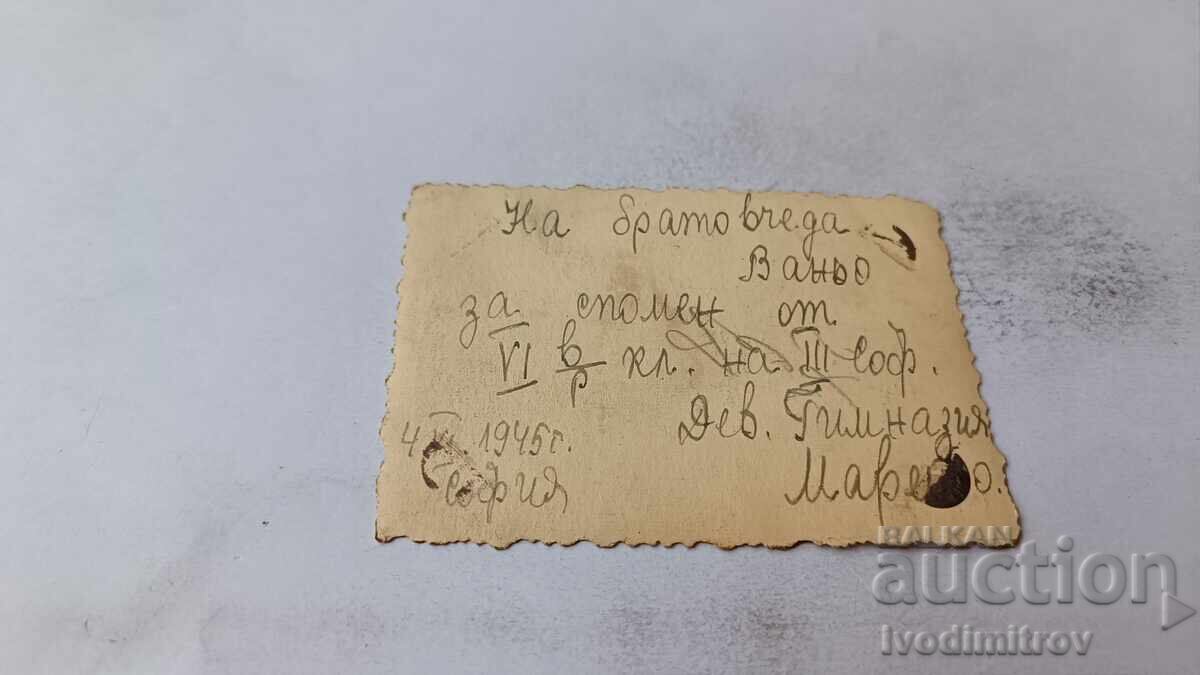 На братовчеда
Ваньо
за спомен от
VI в/р кл. на III Соф.
Дев. Гимназия
4 1945 г.
София
BALKAN
auction
Ivodimitrov